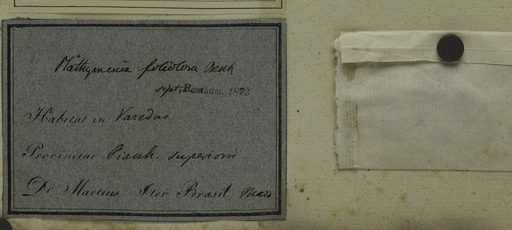 Plathymenia foliolosa Benth
script. Bentham. 1873.
Habitat in Varedas
Provinciae Piauh. superioris
Dr Martius Iter Brasil